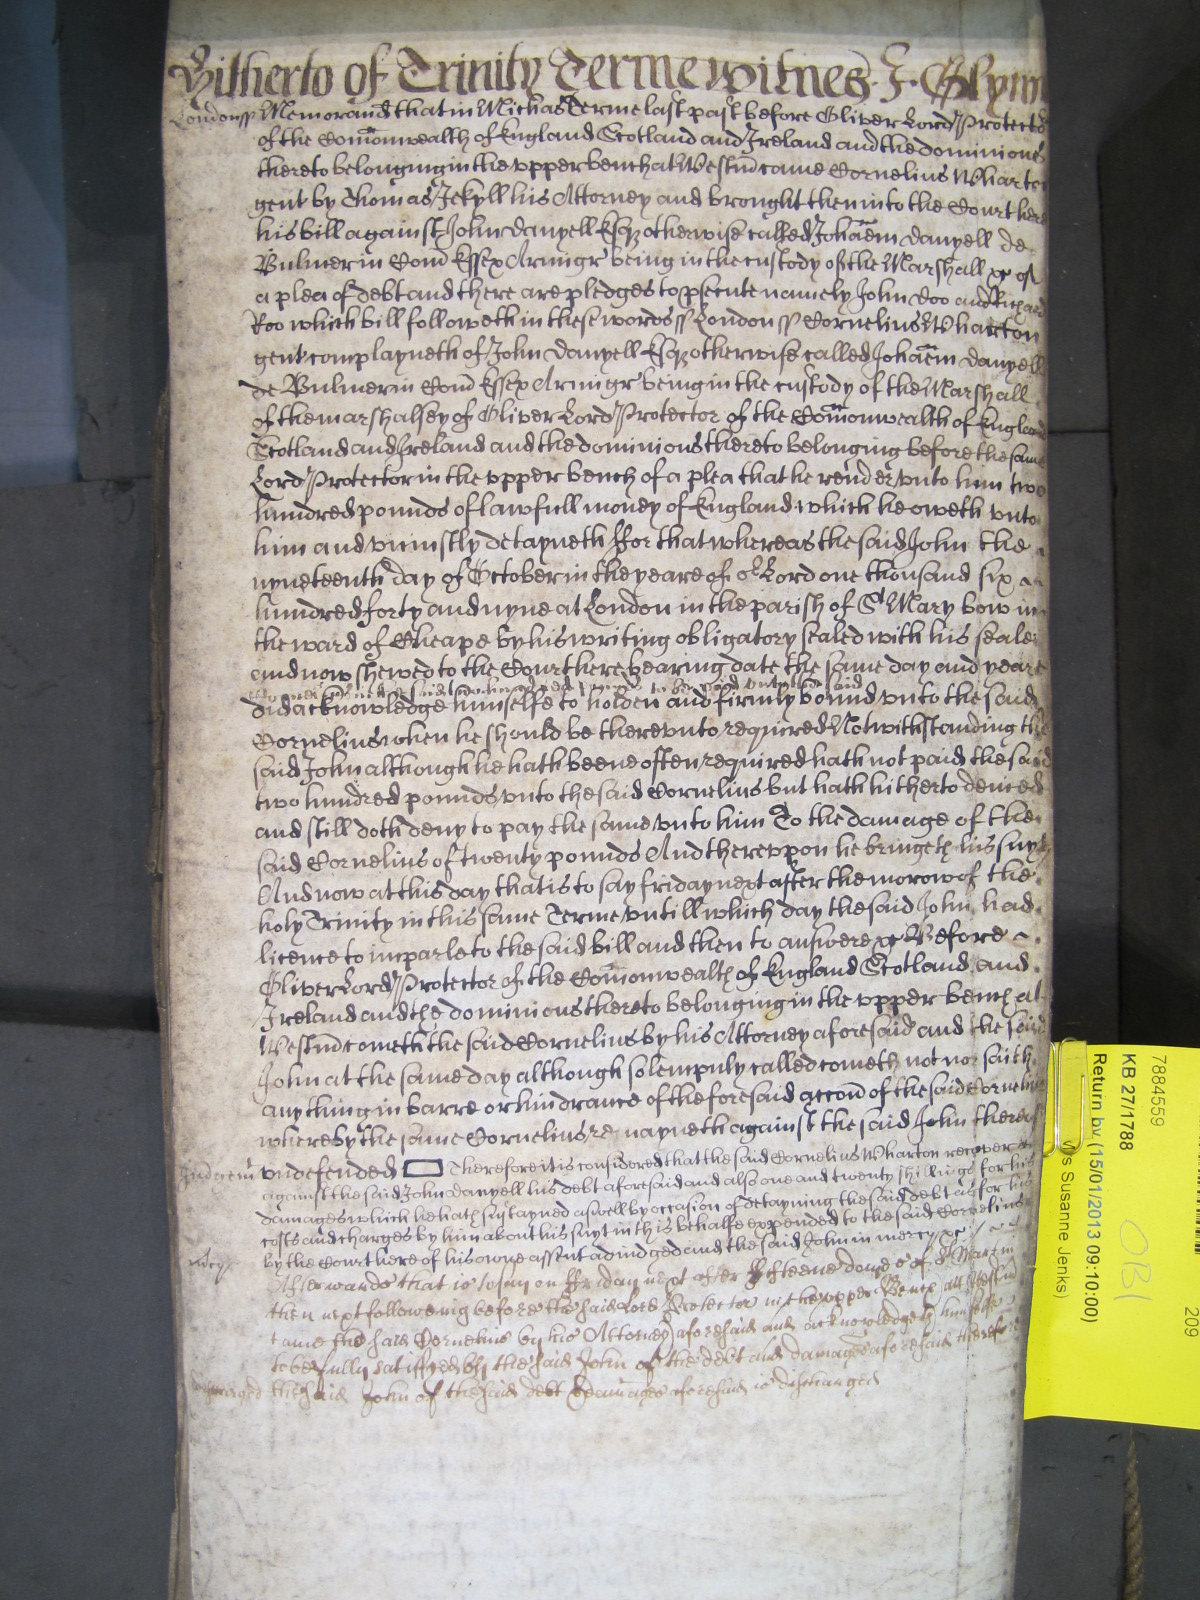 Hitherto of Trinity Terme witnes J. Glynn
London ss Memorand that in Michas Terme last past before Oliver Lord Protector
of the Comonwealth of England Scotland and Ireland and the dominions
thereto belonging in the upper bench at Westm came Cornelius Wharton
gent by Thomas Jekyll his Attorney and brought then into the Court here
his bill against John Danyell Esqr otherwise called Johaem Danyell de
Bulmer in Com Essex Armigr being in the custody of the Marshall &c of
a plea of debt and there are pledges to psecute namely John Doo and Richard
Roo which bill followeth in these words ss London ss Cornelius Wharton
gent complayneth of John Danyell Esqr otherwise called Johaem Danyell
de Bulmer in Com Essex Armigr being in the custody of the Marshall
of the marshalsey of Oliver Lord Protector of the Comonwealth of England
Scotland and Ireland and the dominions thereto belonging before the same
Lord Protector in the upper bench of a plea that he render vnto him two
hundred pounds of lawfull money of England which he oweth vnto
him and vniustly detayneth ffor that whereas the said John the
nyneteenth day of October in the yeare of or Lord one thousand six
hundred forty and nyne at London in the parish of St Mary bow in
the ward of Cheape by his writing obligatory sealed with his seale
and now shewed to the Court here bearing date the same day and yeare
two hundred pounds to be paid vnto the said
did acknowledge himselfe to holden and firmly bound vnto the said
Cornelius when he should be therevnto required Notwithstanding the
said John although he hath beene often required hath not paid the said
two hundred pounds vnto the said Cornelius but hath hitherto denied
and still doth deny to pay the same vnto him To the damage of the
said Cornelius of twenty pounds And therevpon he bringeth his suyt
And now at this day that is to say friday next after the morow of the
holy Trinity in this same Terme vntill which day the said John had
licence to imparle to the said bill and then to answere &c Before
Oliver Lord Protector of the Comonwealth of England Scotland and
Ireland and the dominions thereto belonging in the vpper bench at
Westm cometh the said Cornelius by his Attorney aforesaid and the said
John at the same day although solempnly called cometh not nor saith
any thing in barre or hindrance of the foresaid accon of the said Cornelius
whereby the same Cornelius remayneth against the said John therein
Judgem vndefended Therefore it is considered that the said Cornelius Wharton recover
against the said John Danyell his debt aforesaid and also one and twenty shillings for his
damages which he hath sustayned aswell by occasion of detayning the said debt as for his
costs and charges by him about his suyt in this behalfe expended to the said Cornelius
mercy by the Court here of his owne assent adiudged and the said John in mercy &c
Afterwards that is to say on ffriday next after ffifteene dayes of St Martin
then next following before the said Lord Protector in the vpper Bench att Westm
came the said Cornelius by his Attorney aforesaid and acknowledgeth himselfe
to be fully satisfyed by the said John of the debt and damages aforesaid therefore
the said John of the said debt & damages aforesaid is discharged
7884559
KB 27/1788
Return by (15/01/2013 09:10:00)
s Susanne Jenks)
OB1
209